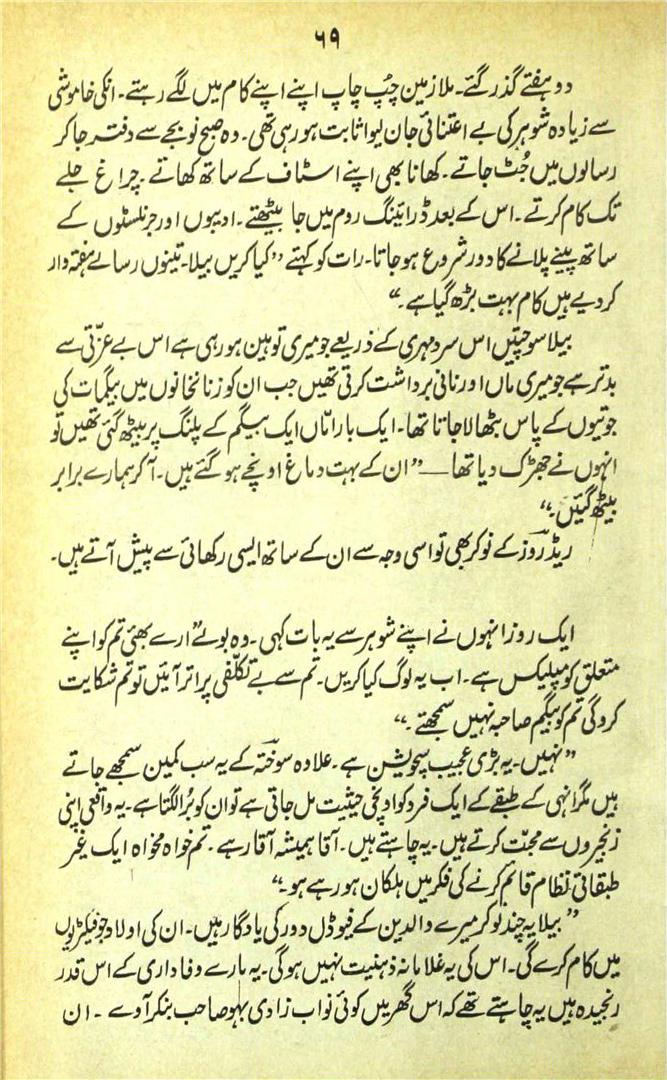 ۶۹
دو ہفتے گذر گئے۔ ملازمین چُپ چاپ اپنے اپنے کام میں لگے رہتے۔ انکی خاموشی
سے زیادہ شوہر کی بے اعتنائی جان لیوا ثابت ہو رہی تھی۔ وہ صبح نو بجے سے دفتر جا کر
رسالوں میں جُٹ جاتے۔ کھانا بھی اپنے اسٹاف کے ساتھ کھاتے ۔ چراغ جلے
تک کام کرتے ۔ اس کے بعد ڈرائینگ روم میں جا بیٹھتے ۔ ادیبوں اور جرنلسٹوں کے
ساتھ پینے پلانے کا دور شروع ہو جاتا۔ رات کو کہتے ”کیا کریں بیلا۔ تینوں رسالے ہفتہ وار
کر دیے ہیں کام بہت بڑھ گیا ہے۔“
بیلا سوچتیں اس سرد مہری کے ذریعے جو میری توہین ہو رہی ہے اس بے عزّتی سے
بدتر ہے جو میری ماں اور نانی برداشت کرتی تھیں جب ان کو زنانخانوں میں بیگمات کی
جوتیوں کے پاس بٹھالا جاتا تھا۔ ایک بار امّاں ایک بیگم کے پلنگ پر بیٹھ گئی تھیں تو
انہوں نے جھڑک دیا تھا — ”ان کے بہت دماغ اونچے ہو گئے ہیں۔ آ کر ہمارے برابر
بیٹھ گئیں۔“
ریڈ روز کے نوکر بھی تو اسی وجہ سے ان کے ساتھ ایسی رکھائی سے پیش آتے ہیں۔
ایک روز انہوں نے اپنے شوہر سے یہ بات کہی۔ وہ بولے ”ارے بھئی تم کو اپنے
متعلق کومپلیکس ہے۔ اب یہ لوگ کیا کریں۔ تم سے بے تکلّفی پر اتر آئیں تو تم شکایت
کرو گی تم کو بیگم صاحبہ نہیں سمجھتے ۔“
”نہیں۔ یہ بڑی عجیب سچویشن ہے۔ علاوہ سوختہ کے یہ سب کمین سمجھے جاتے
ہیں مگر انہی کے طبقے کے ایک فرد کو اونچی حیثیت مل جاتی ہے تو ان کو بُرا لگتا ہے۔ یہ واقعی اپنی
زنجیروں سے محبّت کرتے ہیں۔ یہ چاہتے ہیں۔ آقا ہمیشہ آقا رہے ۔ تم خواہ مخواہ ایک غیر
طبقاتی نظام قائم کرنے کی فکر میں ہلکان ہو رہے ہو۔“
”بیلا یہ چند نوکر میرے والدین کے فیوڈل دور کی یادگار ہیں۔ ان کی اولاد جو فیکٹریوں
میں کام کرے گی۔ اس کی یہ غلامانہ ذہنیت نہیں ہو گی۔ یہ مارے وفاداری کے اس قدر
رنجیدہ ہیں یہ چاہتے تھے کہ اس گھر میں کوئی نواب زادی بہو صاحب بنکر آوے ۔ ان